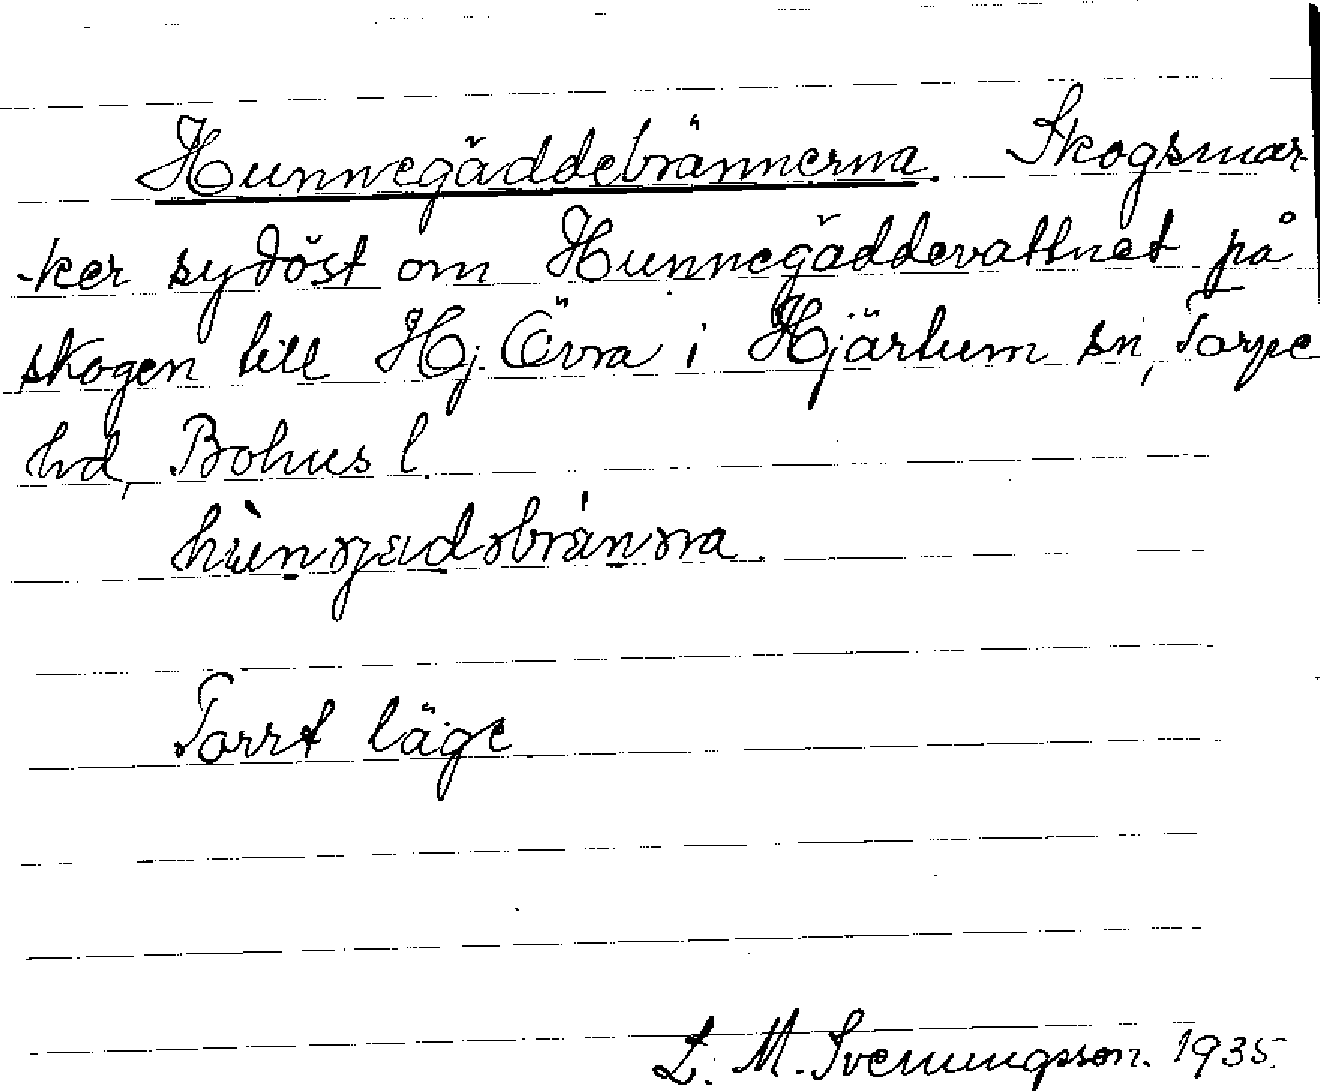 Hunnegäddebrännerna. Skogsmar-
-ker sydöst om Hunnegäddevattnet på
skogen till Hj. Övra i Hjärtum sn, Torpe
hd, Bohus l.
Torrt läge
L. M. Svenungsson. 1935.